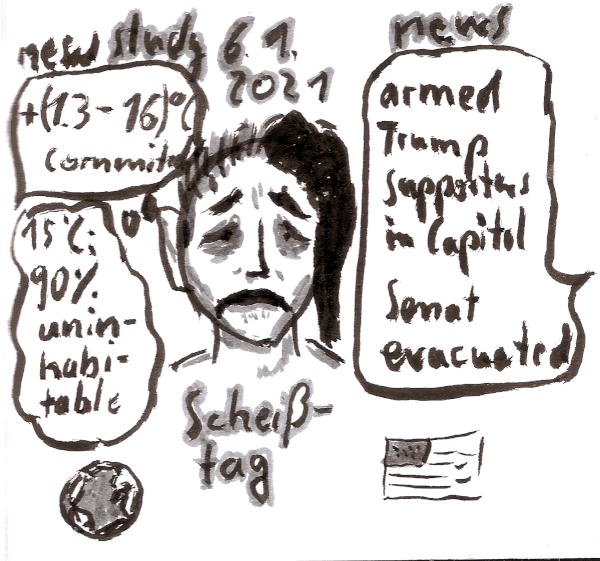 new study 6.1.
2021
+(13–16)°C
committed
15°C:
90%
unin-
habi-
table
news
armed
Trump
supporters
in Capitol
Senat
evacuated
Scheiß-
tag